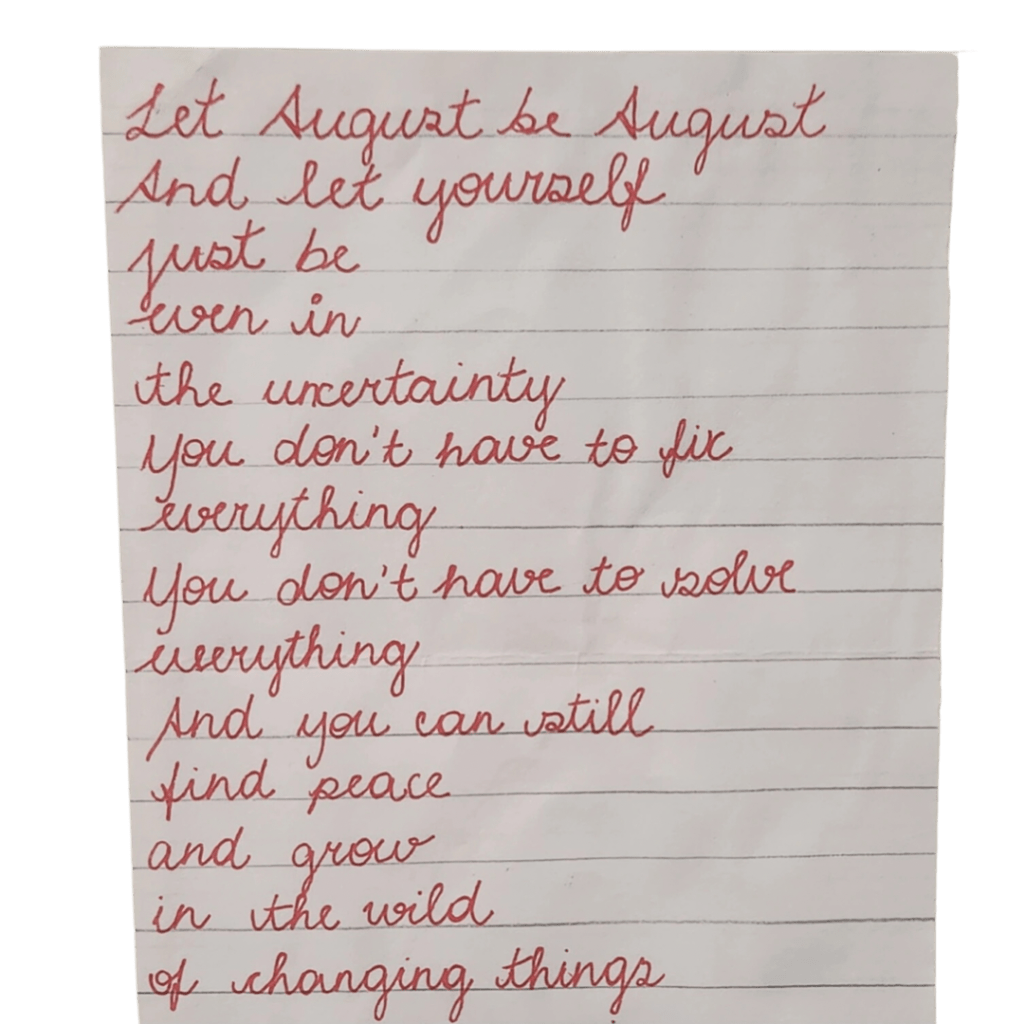 Let August be August
And let yourself
just be
even in
the uncertainty
You don't have to fix
everything
You don't have to solve
everything
And you can still
find peace
and grow
in the wild
of changing things